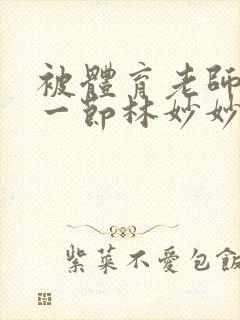 被體育老師
一節林妙妙
紫菜不愛包飯